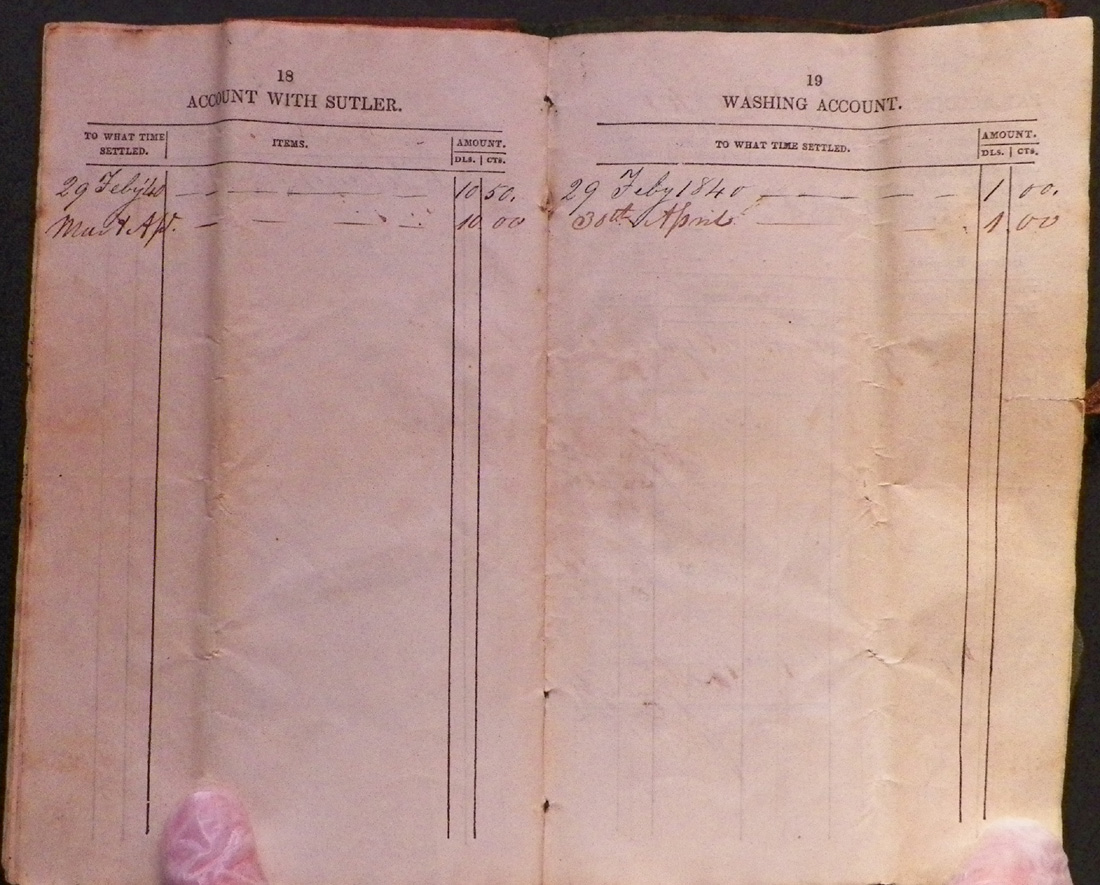 18
ACCOUNT WITH SUTLER.
TO WHAT TIME SETTLED. ITEMS. AMOUNT.
DLS. CTS.
29 Feby '40 — — — — — 10 50.
Mar & Ap. — — — — — 10 00
19
WASHING ACCOUNT.
TO WHAT TIME SETTLED. AMOUNT.
DLS. CTS.
29 Feby 1840 — — — — 1 00.
30th April — — — — 1 00